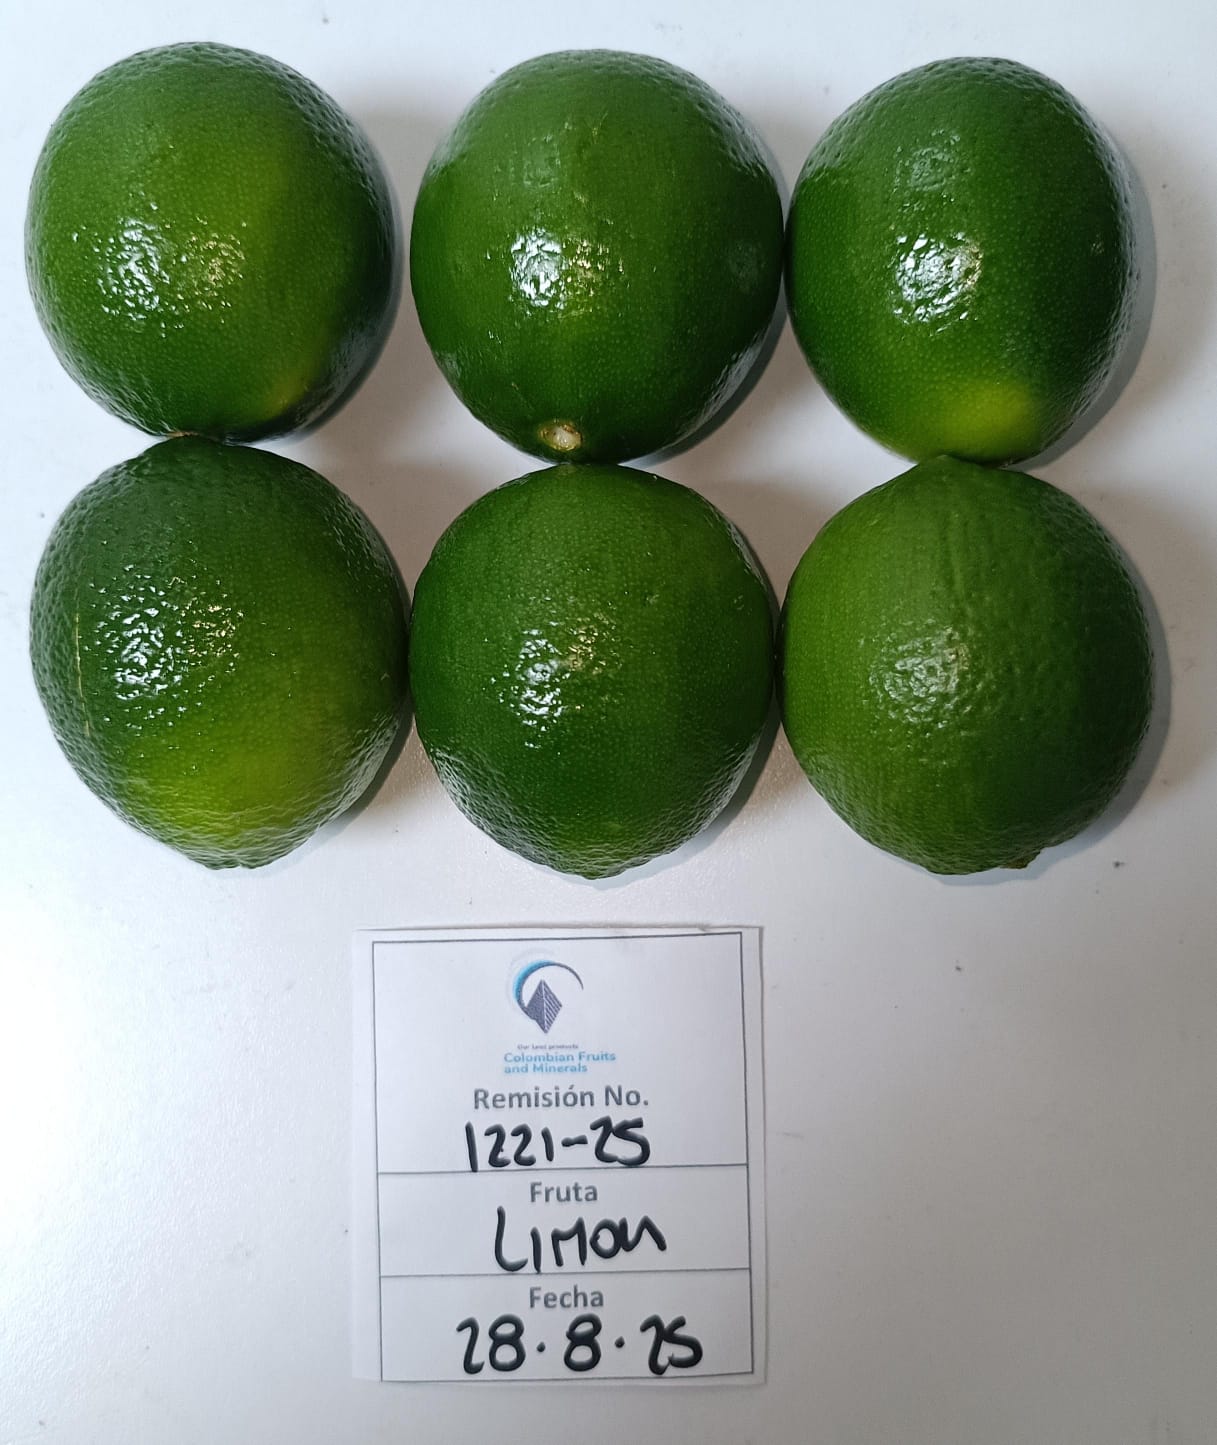 Our land products
Colombian Fruits
and Minerals
Remisión No.
1221-25
Fruta
LIMON
Fecha
28.8.25